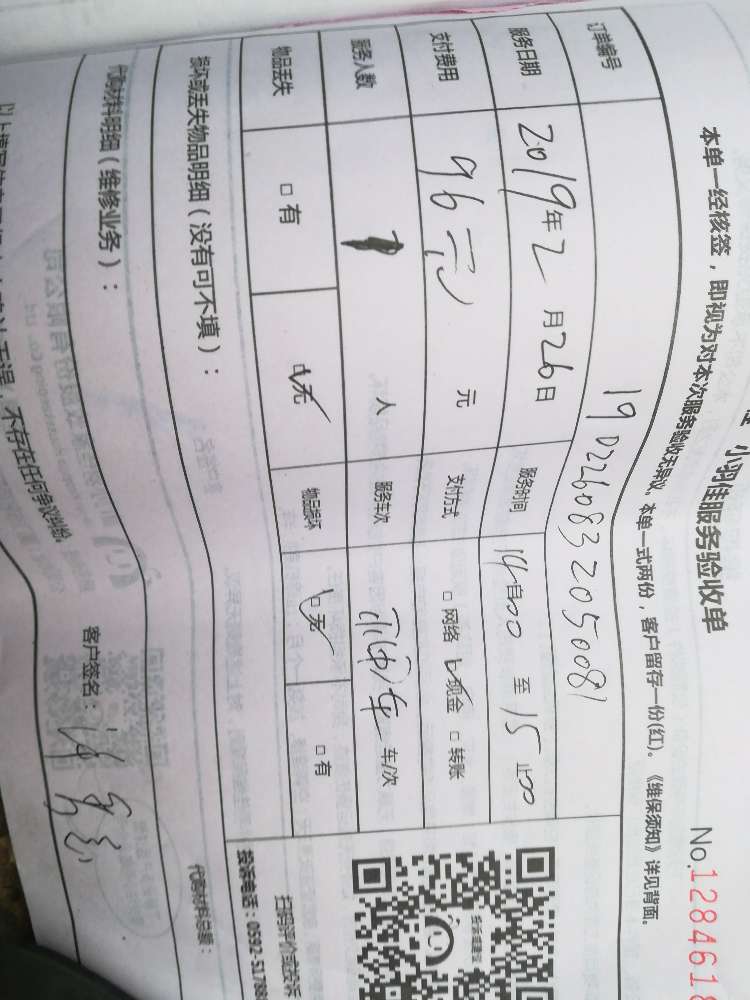 小羽佳服务验收单
No.1284618
本单一经核签，即视为对本次服务验收无异议。本单一式两份，客户留存一份(红)。《维保须知》详见背面。
订单编号 1902260832050081
服务日期 2019年2月26日 服务时间 14自00 至 15止00
支付费用 96元 元 支付方式 □网络 □现金 □转账
服务人数 1 人 服务车次 车 车/次
物品丢失 □有 □无 物品损坏 □无 □有
损坏或丢失物品明细（没有可不填）：
扫码评价或投诉
投诉电话：0592-51788
代购材料明细（维修业务）：
代购材料总额：
不存在任何争议纠纷。
客户签名：